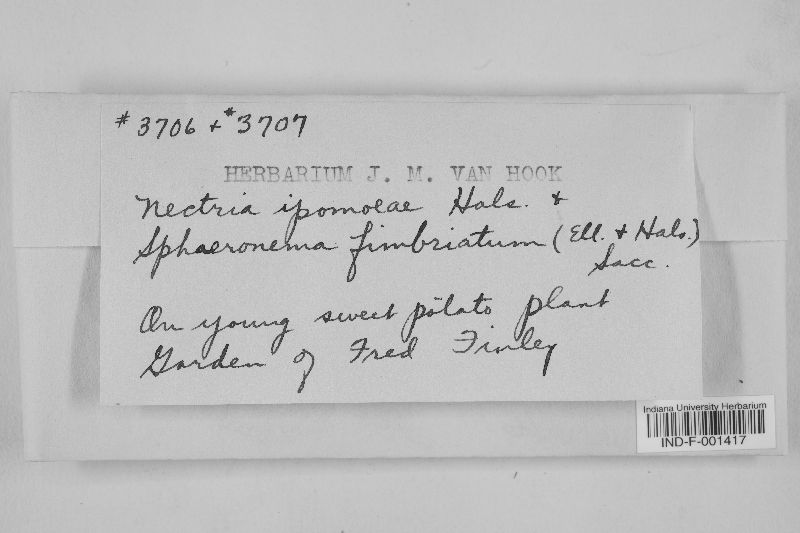 #3706 + #3707
HERBARIUM J. M. VAN HOOK
Nectria ipomoeae Hals. &
Sphaeronema fimbriatum (Ell. & Hals.)
Sacc.
On young sweet potato plant
Garden of Fred Finley
Indiana University Herbarium
IND-F-001417